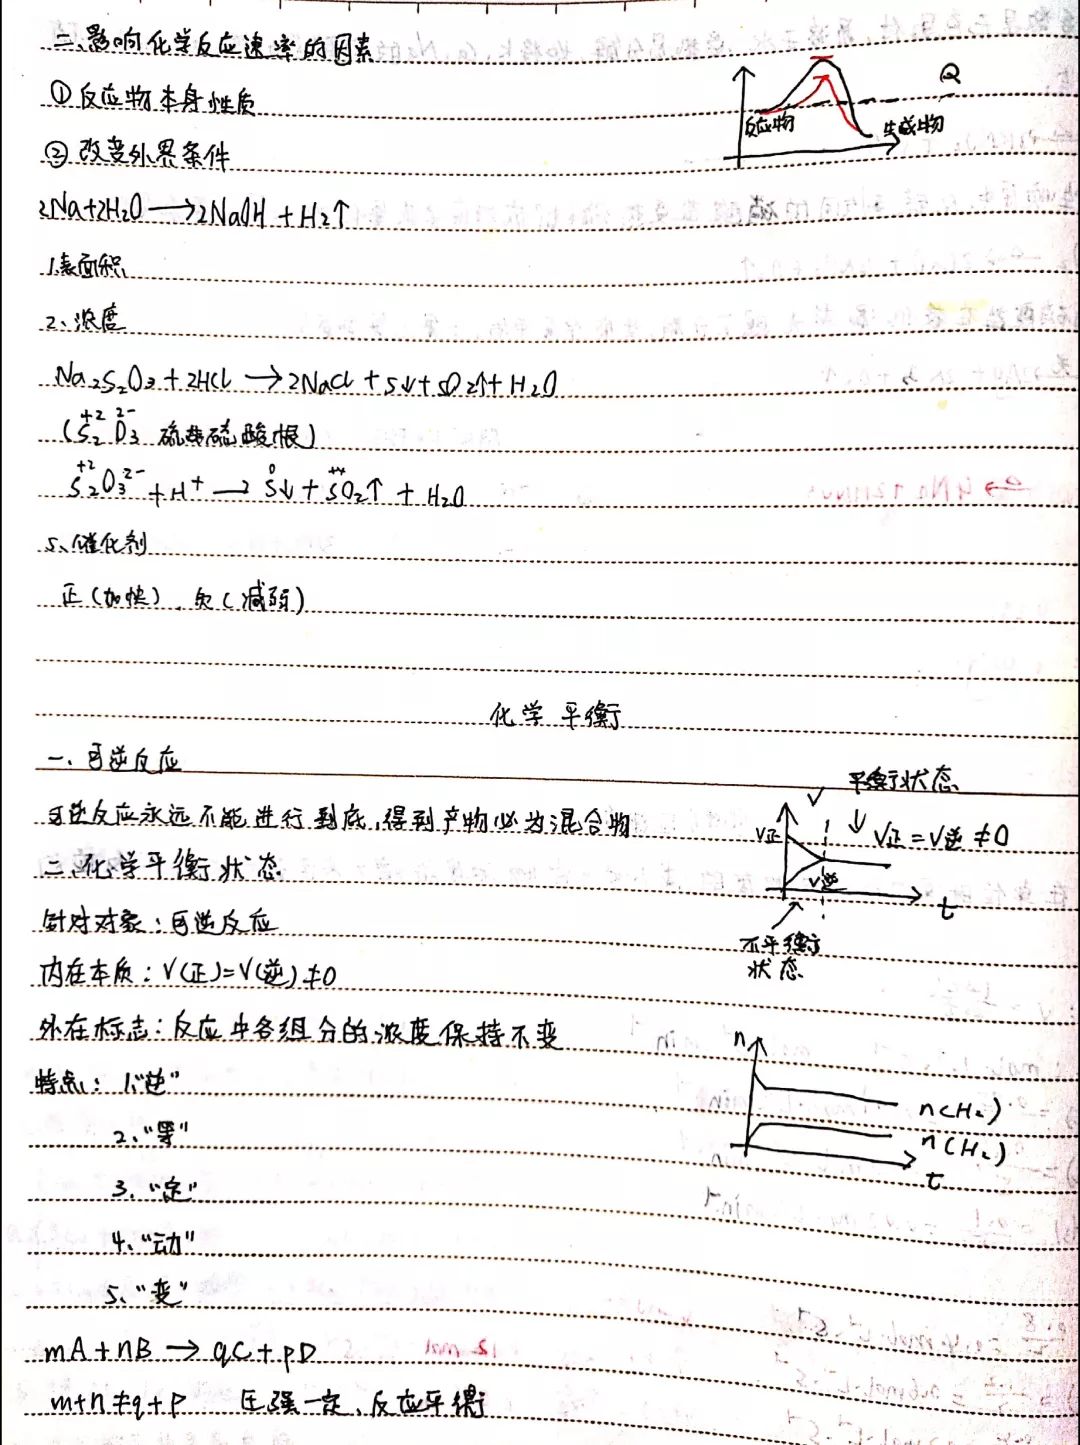 二、影响化学反应速率的因素
①反应物本身性质
②改变外界条件
2Na+2H₂O→2NaOH+H₂↑
1.表面积
2、浓度
Na₂S₂O₃+2HCl→2NaCl+S↓+SO₂↑+H₂O
+2 2-
(S₂O₃ 硫代硫酸根)
+2 0 +4
S₂O₃²⁻+H⁺→S↓+SO₂↑+H₂O
5、催化剂
正(加快)、负(减弱)
Q
反应物 生成物
化学平衡
一、可逆反应
可逆反应永远不能进行到底,得到产物必为混合物
二、化学平衡状态
针对对象:可逆反应
内在本质:V(正)=V(逆)≠0
外在标志:反应中各组分的浓度保持不变
特点:1."逆"
2、"等"
3、"定"
4、"动"
5、"变"
mA+nB→qC+pD
m+n≠q+p 压强一定、反应平衡
V 平衡状态
V正 V正=V逆≠0
V逆
t
不平衡
状态
n
n(H₂)
n(H₂)
t